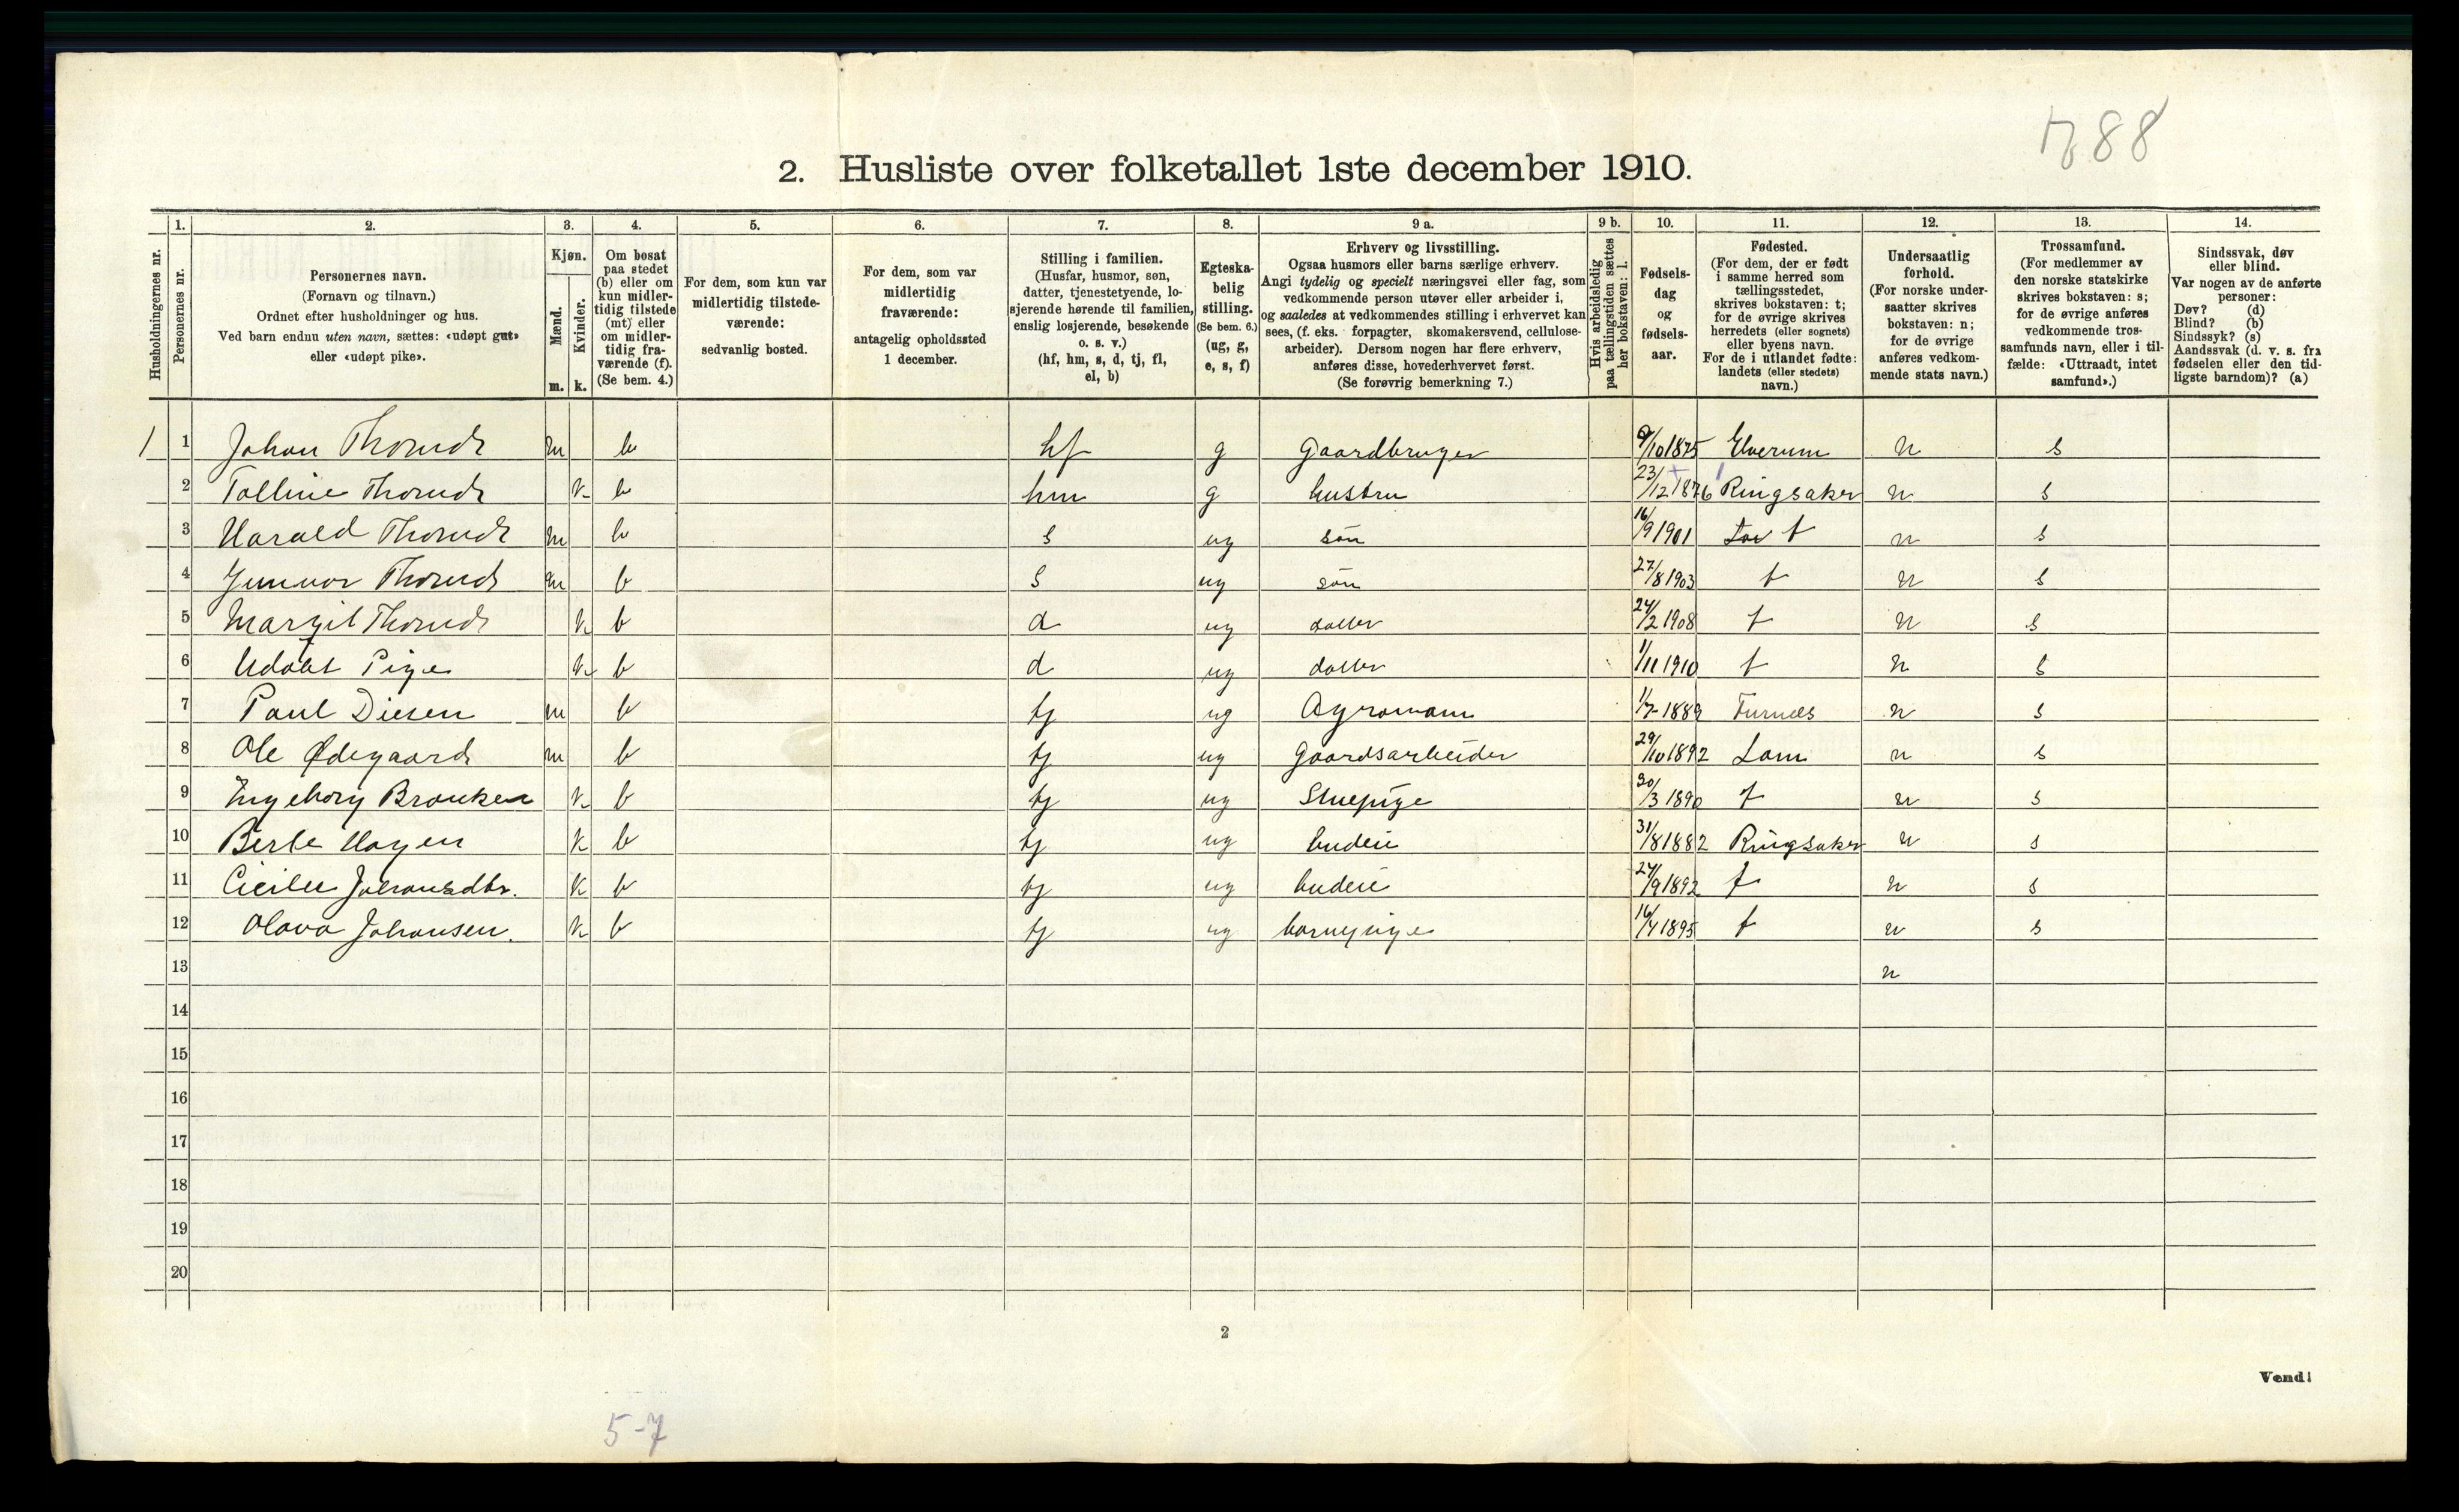 788
2. Husliste over folketallet 1ste december 1910.
1. 2. 3. 4. 5. 6. 7. 8. 9 a. 9 b. 10. 11. 12. 13. 14.
Husholdningernes nr.
Personernes nr.
Personernes navn.
(Fornavn og tilnavn.)
Ordnet efter husholdninger og hus.
Ved barn endnu uten navn, sættes: «udøpt gut»
eller «udøpt pike».
Kjøn.
Mænd.
Kvinder.
m. k.
Om bosat
paa stedet
(b) eller om
kun midler-
tidig tilstede
(mt) eller
om midler-
tidig fra-
værende (f).
(Se bem. 4.)
For dem, som kun var
midlertidig tilstede-
værende:
sedvanlig bosted.
For dem, som var
midlertidig
fraværende:
antagelig opholdssted
1 december.
Stilling i familien.
(Husfar, husmor, søn,
datter, tjenestetyende, lo-
sjerende hørende til familien,
enslig losjerende, besøkende
o. s. v.)
(hf, hm, s, d, tj, fl,
el, b)
Egteska-
belig
stilling.
(Se bem. 6.)
(ug, g,
e, s, f)
Erhverv og livsstilling.
Ogsaa husmors eller barns særlige erhverv.
Angi tydelig og specielt næringsvei eller fag, som
vedkommende person utøver eller arbeider i,
og saaledes at vedkommendes stilling i erhvervet kan
sees, (f. eks. forpagter, skomakersvend, cellulose-
arbeider). Dersom nogen har flere erhverv,
anføres disse, hovederhvervet først.
(Se forøvrig bemerkning 7.)
Hvis arbeidsledig
paa tællingstiden sættes
her bokstaven: l.
Fødsels-
dag
og
fødsels-
aar.
Fødested.
(For dem, der er født
i samme herred som
tællingsstedet,
skrives bokstaven: t;
for de øvrige skrives
herredets (eller sognets)
eller byens navn.
For de i utlandet fødte:
landets (eller stedets)
navn.)
Undersaatlig
forhold.
(For norske under-
saatter skrives
bokstaven: n;
for de øvrige
anføres vedkom-
mende stats navn.)
Trossamfund.
(For medlemmer av
den norske statskirke
skrives bokstaven: s;
for de øvrige anføres
vedkommende tros-
samfunds navn, eller i til-
fælde: «Uttraadt, intet
samfund».)
Sindssvak, døv
eller blind.
Var nogen av de anførte
personer:
Døv? (d)
Blind? (b)
Sindssyk? (s)
Aandssvak (d. v. s. fra
fødselen eller den tid-
ligste barndom)? (a)
1 1 Johan Thorud m b hf g Gaardbruger 9/10 1875 Elverum n s
2 Tolline Thorud k b hm g hustru 23/12 1876 Ringsaker n s
3 Harald Thorud m b s ug søn 16/9 1901 t n s
4 Gunnar Thorud m b s ug søn 27/8 1903 t n s
5 Margit Thorud k b d ug datter 24/2 1908 t n s
6 Udøbt Pige k b d ug datter 1/11 1910 t n s
7 Paul Diesen m b tj ug Agronom 1/7 1889 Furnes n s
8 Ole Ødegaard m b tj ug Gaardsarbeider 29/10 1892 Lom n s
9 Ingeborg Bronken k b tj ug Stuepige 30/3 1890 t n s
10 Berte Hagen k b tj ug budeie 31/8 1882 Ringsaker n s
11 Cicilie Johansdtr. k b tj ug budeie 24/9 1892 t n s
12 Olava Johansen. k b tj ug barnepige 16/4 1895 t n s
13 n
14
15
16
17
18
19
20
2
Vend!
5-7